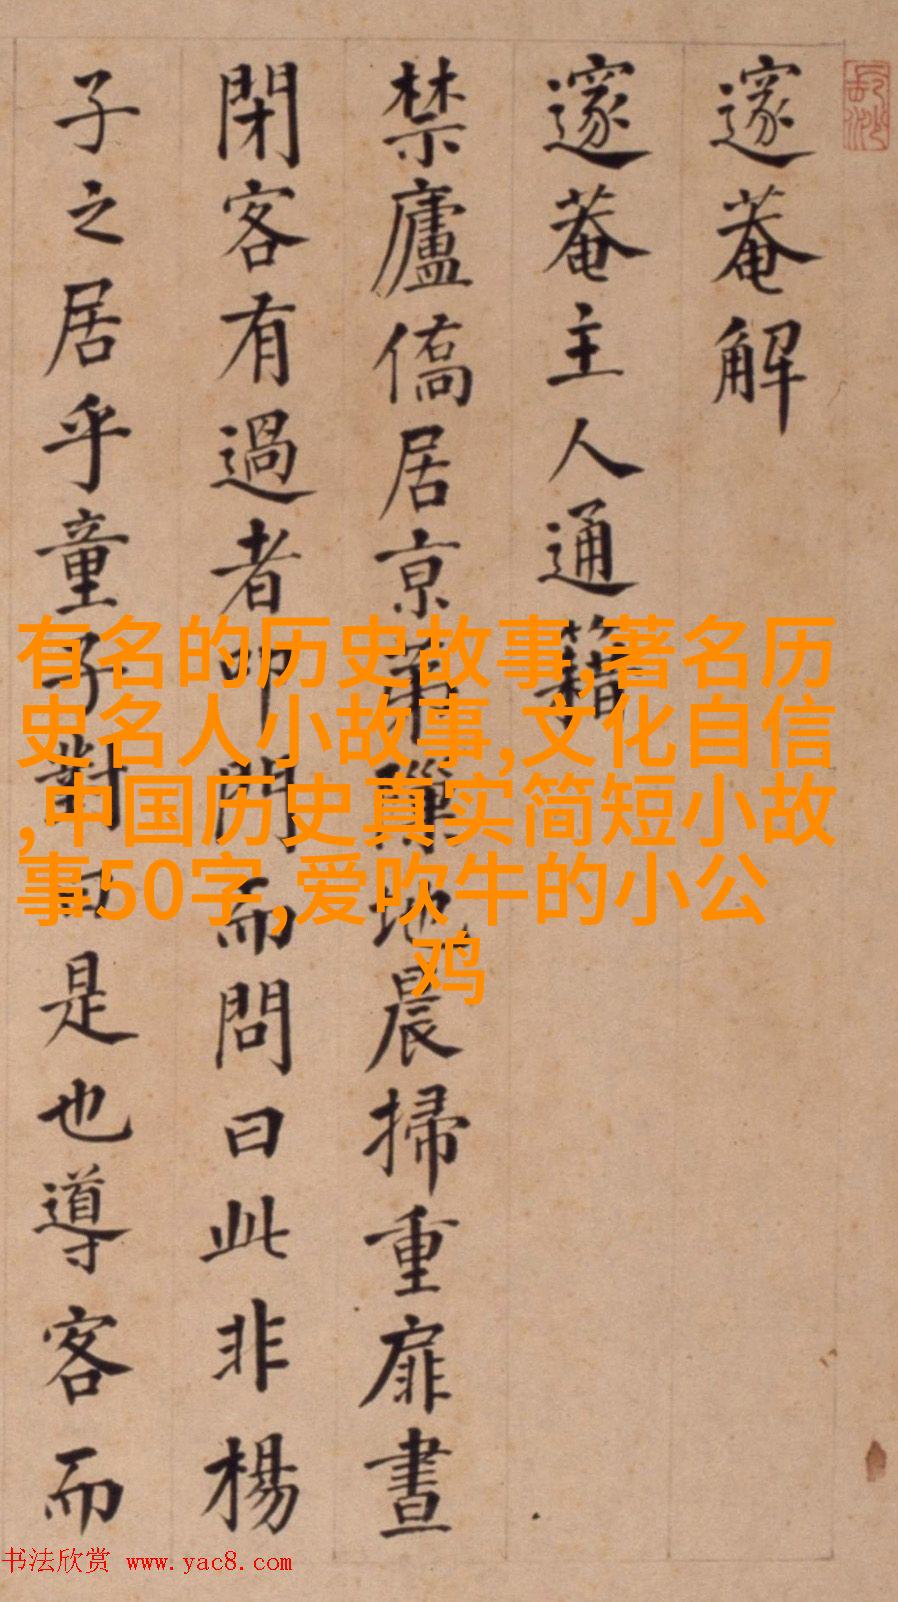 邃菴解
邃菴主人通籍
禁廬僑居京第地晨掃重扉晝
閉客有過者叩門而問曰此非楊
子之居乎童子對曰是也導客而
有名的历史故事,著名历
史名人小故事,文化自信
,中国历史真实简短小故
事50字,爱吹牛的小公
鸡
书法欣赏 www.yac8.com